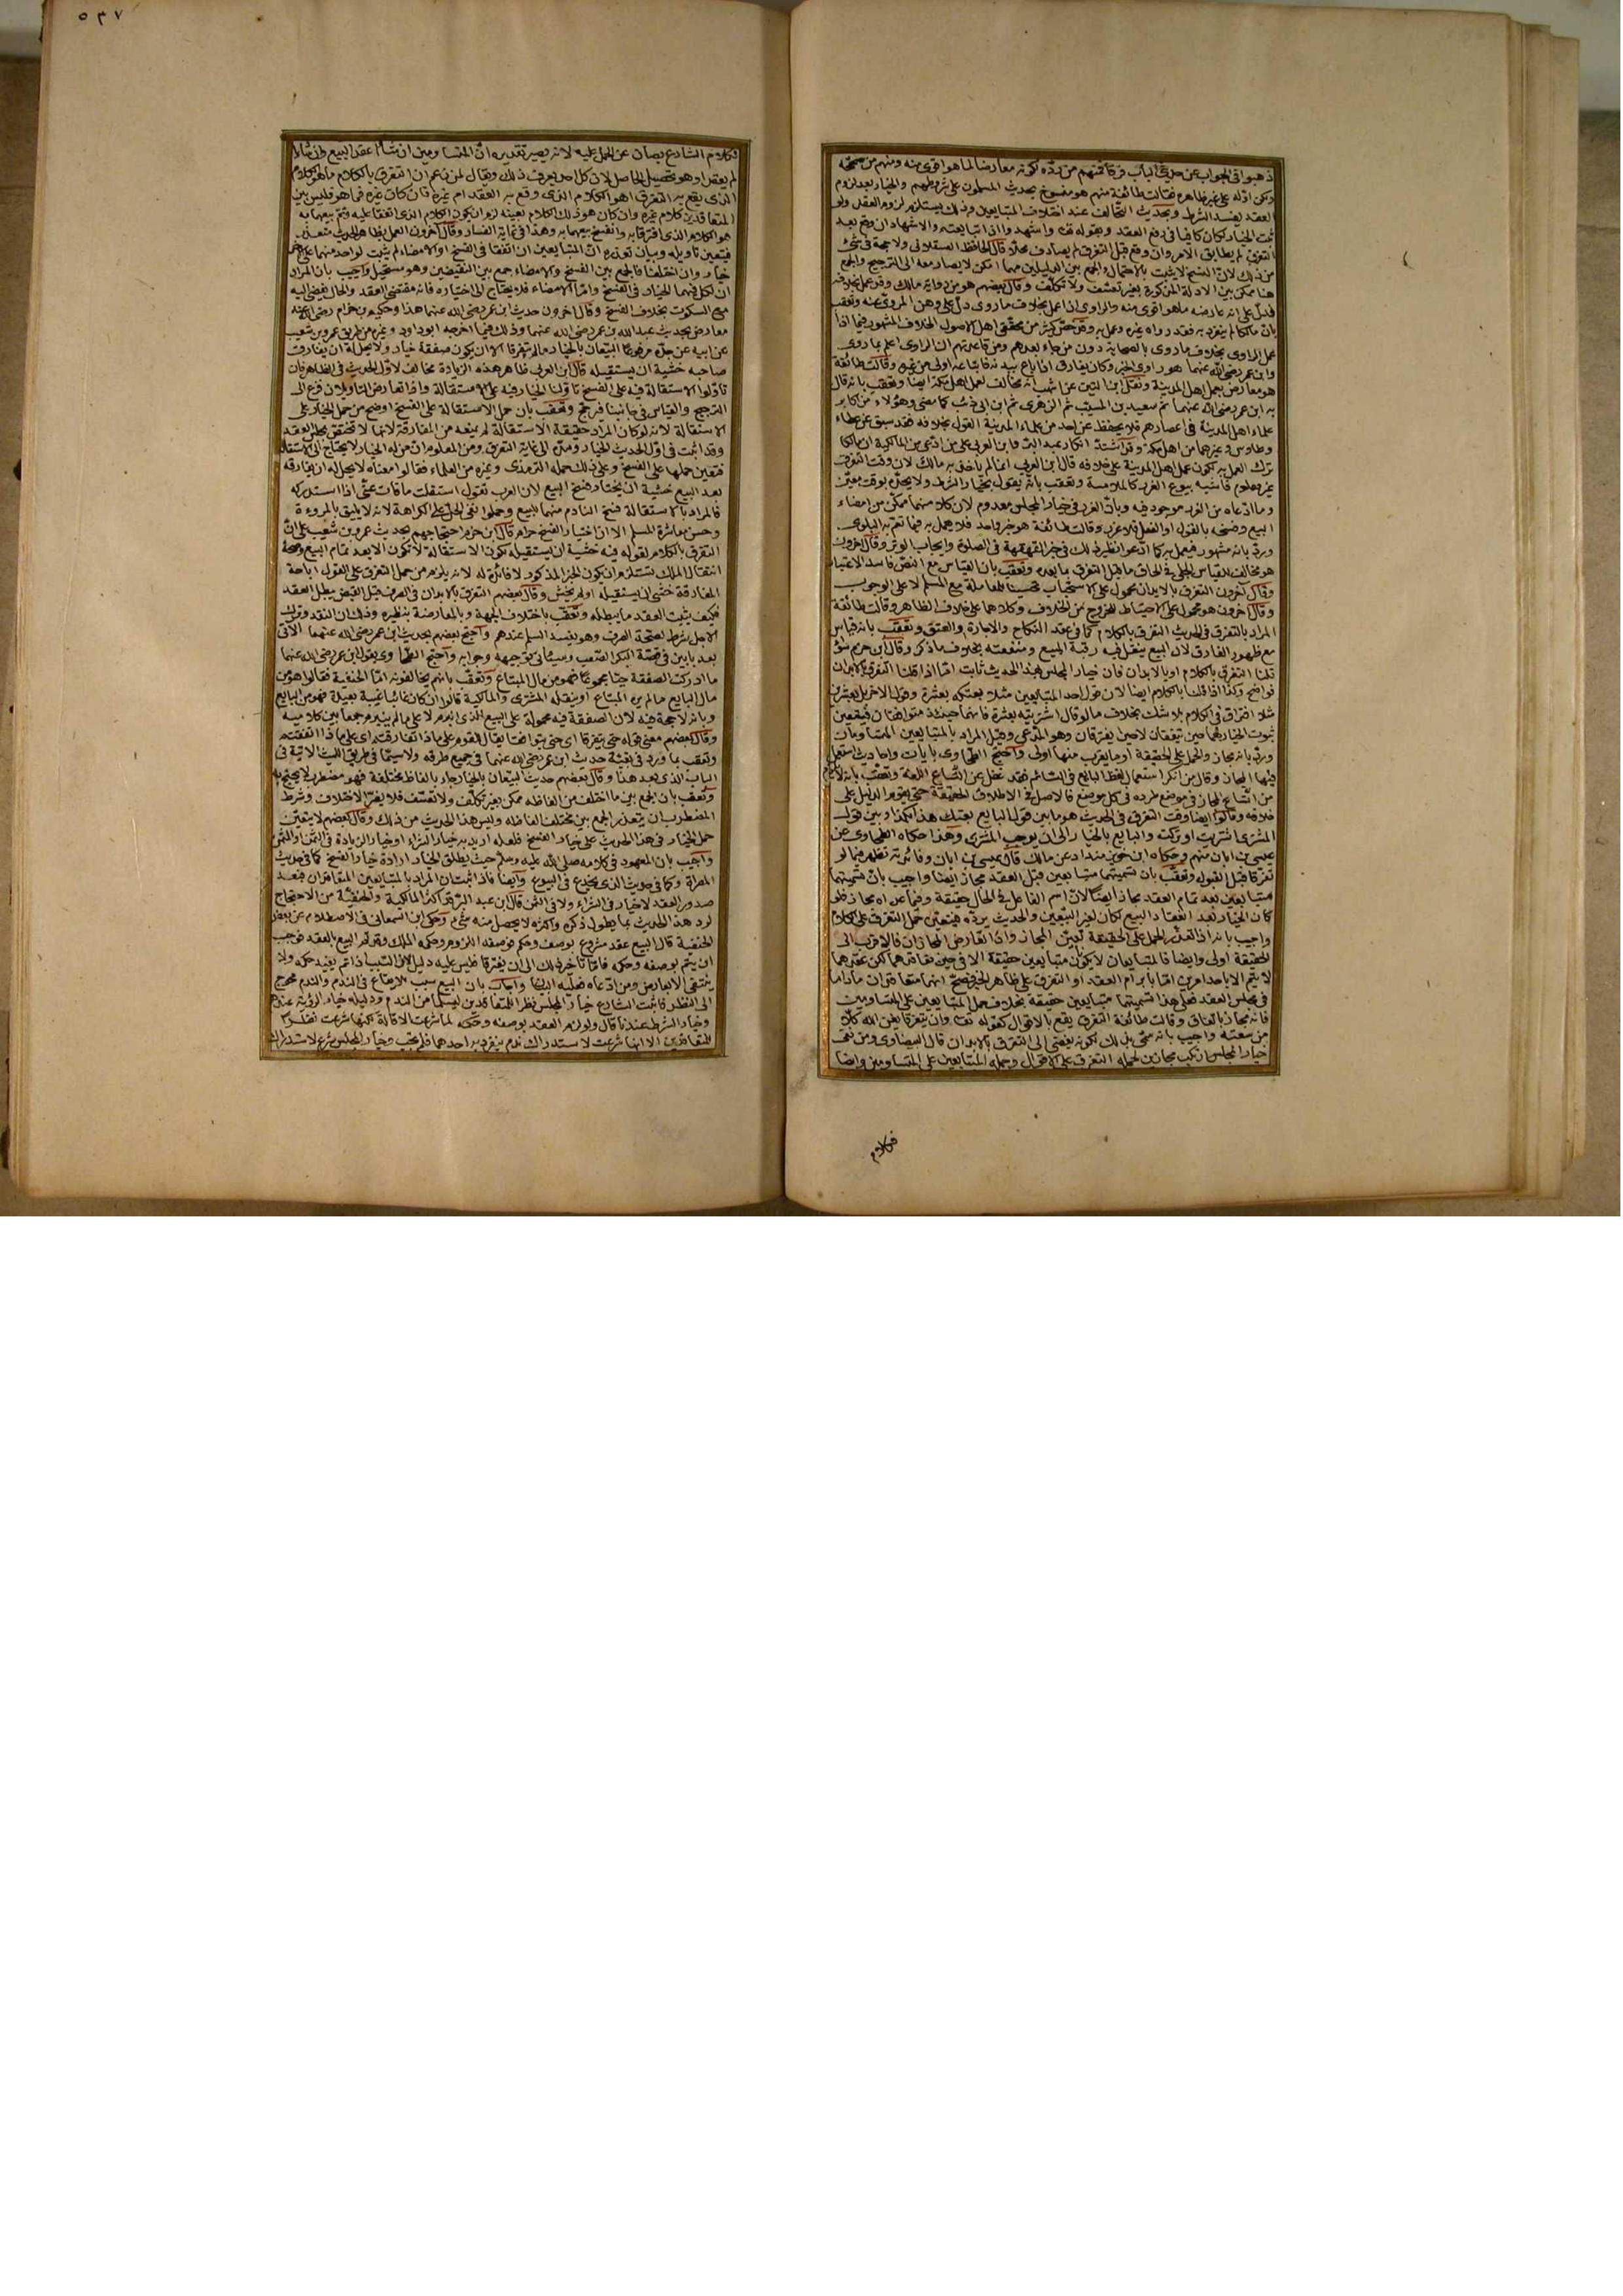 ذهبوا في الجواب عن حديث الباب فرقا فمنهم من رده لكونه معارضا لما هو اقوى منه ومنهم من صححه
ولكن اوله على غير ظاهره فقالت طائفة منهم هو منسوخ بحديث المسلمون على شروطهم والخيار بعد لزوم
العقد يفسد الشرط وبحديث التحالف عند اختلاف المتبايعين وذلك يستلزم لزوم العقد ولو
ثبت الخيار لكان كافيا في رفع العقد وبقوله تعالى واشهدوا اذا تبايعتم والاشهاد ان وقع بعد
التفرق لم يطابق الامر وان وقع قبل التفرق لم يصادف محلا قال الحافظ العسقلاني ولا حجة في شئ
من ذلك لان النسخ لا يثبت بالاحتمال والجمع بين الدليلين مهما امكن لا يصار معه الى الترجيح والجمع
هنا ممكن بين الادلة المذكورة بغير تعسف ولا تكلف وقال بعضهم هو من رواية مالك وقد عمل بخلافه
فدل على انه عارضه ما هو اقوى منه والراوي اذا عمل بخلاف ما روى دل على وهن المروي عنه وتعقب
بان مالكا لم يتفرد به فقد رواه غيره وعمل به وقد خص كثير من محققي اهل الاصول الخلاف المشهور فيما اذا
عمل الراوي بخلاف ما روى بالصحابة دون من جاء بعدهم ومن قاعدتهم ان الراوي اعلم بما روى
وابن عمر رضي الله عنهما هو راوي الخبر وكان يفارق اذا باع ببدنه فاتباعه اولى من غيره وقالت طائفة
هو معارض بعمل اهل المدينة ونقل ابن التين عن اشهب انه مخالف لعمل اهل مكة ايضا وتعقب بانه قال
به ابن عمر رضي الله عنهما ثم سعيد بن المسيب ثم الزهري ثم ابن ابي ذئب كما مضى وهؤلاء من اكابر
علماء اهل المدينة في اعصارهم فلا يحفظ عن احد من علماء المدينة القول بخلافه فقد سبق عن عطاء
وطاوس وغيرهما من اهل مكة وقد اشتد انكار عبد البر وابن العربي على من ادعى من المالكية ان مالكا
ترك العمل به لكون عمل اهل المدينة على خلافه قال ابن العربي انما لم يأخذ به مالك لان وقت التفرق
غير معلوم فاشبه بيوع الغرر كالملامسة وتعقب بانه يقول بخيار الشرط ولا يحده بوقت معين
وما ادعاه من الغرر موجود فيه وبان الغرر في خيار المجلس معدوم لان كلا منهما ممكن من امضاء
البيع وفسخه بالقول او الفعل فلا غرر وقالت طائفة هو خبر واحد فلا يعمل به فيما تعم به البلوى
ورد بانه مشهور فيعمل به كما ادعوا نظير ذلك في خبر القهقهة في الصلوة وايجاب الوتر وقال اخرون
هو مخالف للقياس الجلي في الحاق ما قبل التفرق بما بعده وتعقب بان القياس مع النص فاسد الاعتبار
وقال اخرون التفرق بالابدان محمول على الاستحباب تحسينا للمعاملة مع المسلم لا على الوجوب
وقال اخرون هو محمول على الاحتياط للخروج من الخلاف وكلاهما على خلاف الظاهر وقالت طائفة
المراد بالتفرق في الحديث التفرق بالكلام كما في عقد النكاح والاجارة والعتق وتعقب بانه قياس
مع ظهور الفارق لان البيع ينقل فيه رقبة المبيع ومنفعته بخلاف ما ذكر وقال ابن حزم سواء
قلنا التفرق بالكلام او بالابدان فان خيار المجلس بهذا الحديث ثابت اما اذا قلنا التفرق بالابدان
فواضح وكذا اذا قلنا بالكلام ايضا لان قول احد المتبايعين مثلا بعتكه بعشرة وقول الاخر بل بعشرين
مثلا افتراق في الكلام بلا شك بخلاف ما لو قال اشتريته بعشرة فانهما حينئذ متوافقان فيتعين
ثبوت الخيار لهما حين يتفقان لا حين يفترقان وهو المدعى وقيل المراد بالمتبايعين المتساومان
ورد بانه مجاز والحمل على الحقيقة او ما يقرب منها اولى واحتج الطحاوي بايات واحاديث استعمل
فيها المجاز وقال من انكر استعمال لفظ البايع في السائم فقد غفل عن اتساع اللغة وتعقب بانه لا يلزم
من اتساع المجاز في موضع طرده في كل موضع فالاصل في الاطلاق الحقيقة حتى يقوم الدليل على
خلافه وقالوا ايضا وقت التفرق في الحديث هو ما بين قول البايع بعتك هذا بكذا وبين قول
المشتري اشتريت او تركت والبايع بالخيار الى ان يوجب المشتري وهذا حكاه الطحاوي عن
عيسى بن ابان منهم وحكاه ابن خويز منداد عن مالك قال عيسى بن ابان وفائدته تظهر فيما لو
تفرقا قبل القبول وتعقب بان تسميتهما متبايعين قبل العقد مجاز ايضا واجيب بان تسميتهما
متبايعين بعد تمام العقد مجاز ايضا لان اسم الفاعل في الحال حقيقة وفيما عداه مجاز فلو
كان الخيار بعد انعقاد البيع لكان لغير البيعين والحديث يرده فيتعين حمل التفرق على الكلام
واجيب بانه اذا تعذر الحمل على الحقيقة تعين المجاز واذا تعارض المجازان فالاقرب الى
الحقيقة اولى وايضا فالمتبايعان لا يكونان متبايعين حقيقة الا في حين تعاقدهما لكن عقدهما
لا يتم الا باحد امرين اما بابرام العقد او التفرق على ظاهر الخبر فصح انهما متعاقدان ما داما
في مجلس العقد فعلى هذا تسميتهما متبايعين حقيقة بخلاف حمل المتبايعين على المتساومين
فانه مجاز باتفاق وقالت طائفة التفرق يقع بالاقوال كقوله تعالى وان يتفرقا يغن الله كلا
من سعته واجيب بانه سمي بذلك لكونه يفضي الى التفرق بالابدان قال البيضاوي ومن نفى
خيار المجلس ارتكب مجازين لحمله التفرق على الاقوال وحمله المتبايعين على المتساومين وايضا
فكلام
٥٣٧
فكلام الشارع يصان عن الحمل عليه لانه يصير تقديره ان المتساومين ان شاءا عقدا البيع وان شاءا
لم يعقدا وهو تحصيل الحاصل لان كل احد يعرف ذلك ويقال لمن زعم ان التفرق بالكلام ما هو الكلام
الذي يقع به التفرق اهو الكلام الذي وقع به العقد ام غيره فان كان غيره فما هو فليس بين
المتعاقدين كلام غيره وان كان هو ذلك الكلام بعينه لزم ان يكون الكلام الذي اتفقا عليه وتم بيعهما به
هو الكلام الذي افترقا به وانفسخ بيعهما به وهذا في غاية الفساد وقال آخرون العمل بظاهر الحديث متعذر
فيتعين تاويله وبيان تعذره ان المتبايعين ان اتفقا في الفسخ او الامضاء لم يثبت لواحد منهما على الاخر
خيار وان اختلفا فالجمع بين الفسخ والامضاء جمع بين النقيضين وهو مستحيل واجيب بان المراد
ان لكل منهما الخيار في الفسخ واما الامضاء فلا يحتاج الى اختياره فانه مقتضى العقد والحال يفضي اليه
مع السكوت بخلاف الفسخ وقال اخرون حديث ابن عمر رضي الله عنهما هذا وحكيم بن حزام رضي الله عنه
معارض بحديث عبد الله بن عمر رضي الله عنهما وذلك فيما اخرجه ابو داود وغيره من طريق عمرو بن شعيب
عن ابيه عن جده مرفوعا البيعان بالخيار ما لم يتفرقا الا ان يكون صفقة خيار ولا يحل له ان يفارق
صاحبه خشية ان يستقيله قال ابن العربي ظاهر هذه الزيادة مخالف لاول الحديث في الظاهر فان
تاولوا الاستقالة فيه على الفسخ تاولنا الخيار فيه على الاستقالة واذا تعارض التاويلان فزع الى
الترجيح والقياس في جانبنا فيرجح وتعقب بان حمل الاستقالة على الفسخ اوضح من حمل الخيار على
الاستقالة لانه لو كان المراد حقيقة الاستقالة لم يمنعه من المفارقة لانها لا تختص بمجلس العقد
وقد اثبت في اول الحديث الخيار ومده الى غاية التفرق ومن المعلوم ان من له الخيار لا يحتاج الى الاستقالة
فتعين حملها على الفسخ وعلى ذلك حمله الترمذي وغيره من العلماء فقالوا معناه لا يحل له ان يفارقه
بعد البيع خشية ان يختار فسخ البيع لان العرب تقول استقلت ما فات عني اذا استدركه
فالمراد بالاستقالة فسخ النادم منهما للبيع وحملوا نفي الحل على الكراهة لانه لا يليق بالمروءة
وحسن معاشرة المسلم الا ان اختيار الفسخ حرام قال ابن حزم احتجاجهم بحديث عمرو بن شعيب على ان
التفرق بالكلام لقوله فيه خشية ان يستقيله لكون الاستقالة لا تكون الا بعد تمام البيع وصحة
انتقال الملك تستلزم ان يكون الخبر المذكور لا فائدة له لانه يلزم من حمل التفرق على القول اباحة
المفارقة خشي ان يستقيله او لم يخش وقال بعضهم التفرق بالابدان في الصرف قبل القبض يبطل العقد
فكيف يثبت العقد ما يبطله وتعقب باختلاف الجهة وبالمعارضة بنظيره وذلك ان النقد وترك
الاجل شرط لصحة الصرف وهو يفسد السلم عندهم واحتج بعضهم بحديث ابن عمر رضي الله عنهما الاتي
بعد بابين في قصة البكر الصعب وسيأتي توجيهه وجوابه واحتج الطحاوي بقول ابن عمر رضي الله عنهما
ما ادركت الصفقة حيا مجموعا فهو من مال المبتاع وتعقب بانهم يخالفونه اما الحنفية فقالوا هو من
مال البايع ما لم يره المبتاع او ينقله المشتري والمالكية قالوا ان كان غائبا غيبة بعيدة فهو من البايع
وبانه لا حجة فيه لان الصفقة فيه محمولة على البيع الذي انبرم لا على ما لم ينبرم جمعا بين كلاميه
وقال بعضهم معنى قوله حتى يتفرقا اي حتى يتوافقا يقال للقوم على ماذا تفارقتم اي على ماذا اتفقتم
وتعقب بما ورد في بقية حديث ابن عمر رضي الله عنهما في جميع طرقه ولا سيما في طريق الليث الاتية في
الباب الذي بعد هذا وقال بعضهم حديث البيعان بالخيار جاء بالفاظ مختلفة فهو مضطرب لا يحتج به
وتعقب بان الجمع بين ما اختلف من الفاظه ممكن بغير تكلف ولا تعسف فلا يضر الاختلاف وشرط
المضطرب ان يتعذر الجمع بين مختلف الفاظه وليس هذا الحديث من ذلك وقال بعضهم لا يتعين
حمل الخيار في هذا الحديث على خيار الفسخ فلعله اريد به خيار الشراء او خيار الزيادة في الثمن او المثمن
واجيب بان المعهود في كلامه صلى الله عليه وسلم حيث يطلق الخيار ارادة خيار الفسخ كما في حديث
المصراة وكما في حديث الذي يخدع في البيوع وايضا فاذا ثبت ان المراد بالمتبايعين المتعاقدان فبعد
صدور العقد لا خيار في الشراء ولا في الثمن قال ابن عبد البر قد اكثر المالكية والحنفية من الاحتجاج
لرد هذا الحديث بما يطول ذكره واكثره لا يحصل منه شئ وحكى ابن السمعاني في الاصطلام عن بعض
الحنفية قال البيع عقد مشروع بوصف وحكم فوصفه اللزوم وحكمه الملك وقد تم البيع بالعقد فوجب
ان يتم بوصفه وحكمه فاما تأخير ذلك الى ان يفترقا فليس عليه دليل لان السبب اذا تم يفيد حكمه ولا
ينتفي الا بعارض ومن ادعاه فعليه البيان واجاب بان البيع سبب للايقاع في الندم والندم محوج
الى النظر فاثبت الشارع خيار المجلس نظرا للمتعاقدين ليسلما من الندم ودليله خيار الرؤية عندهم
وخيار الشرط عندنا قال ولو لزم العقد بوصفه وحكمه لما شرعت الاقالة لكنها شرعت نظرا
للمتعاقدين الا انها شرعت لاستدراك ندم ينفرد به احدهما فلم تجب وخيار المجلس شرع لاستدراك